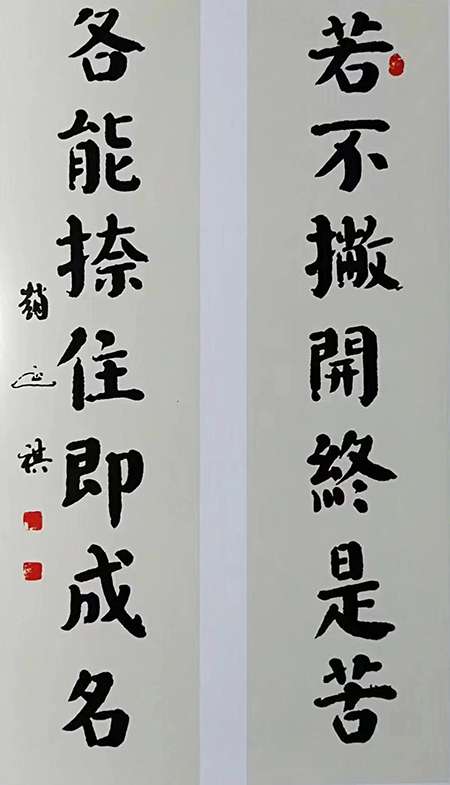 若不撇開終是苦
各能捺住即成名
趙
祺